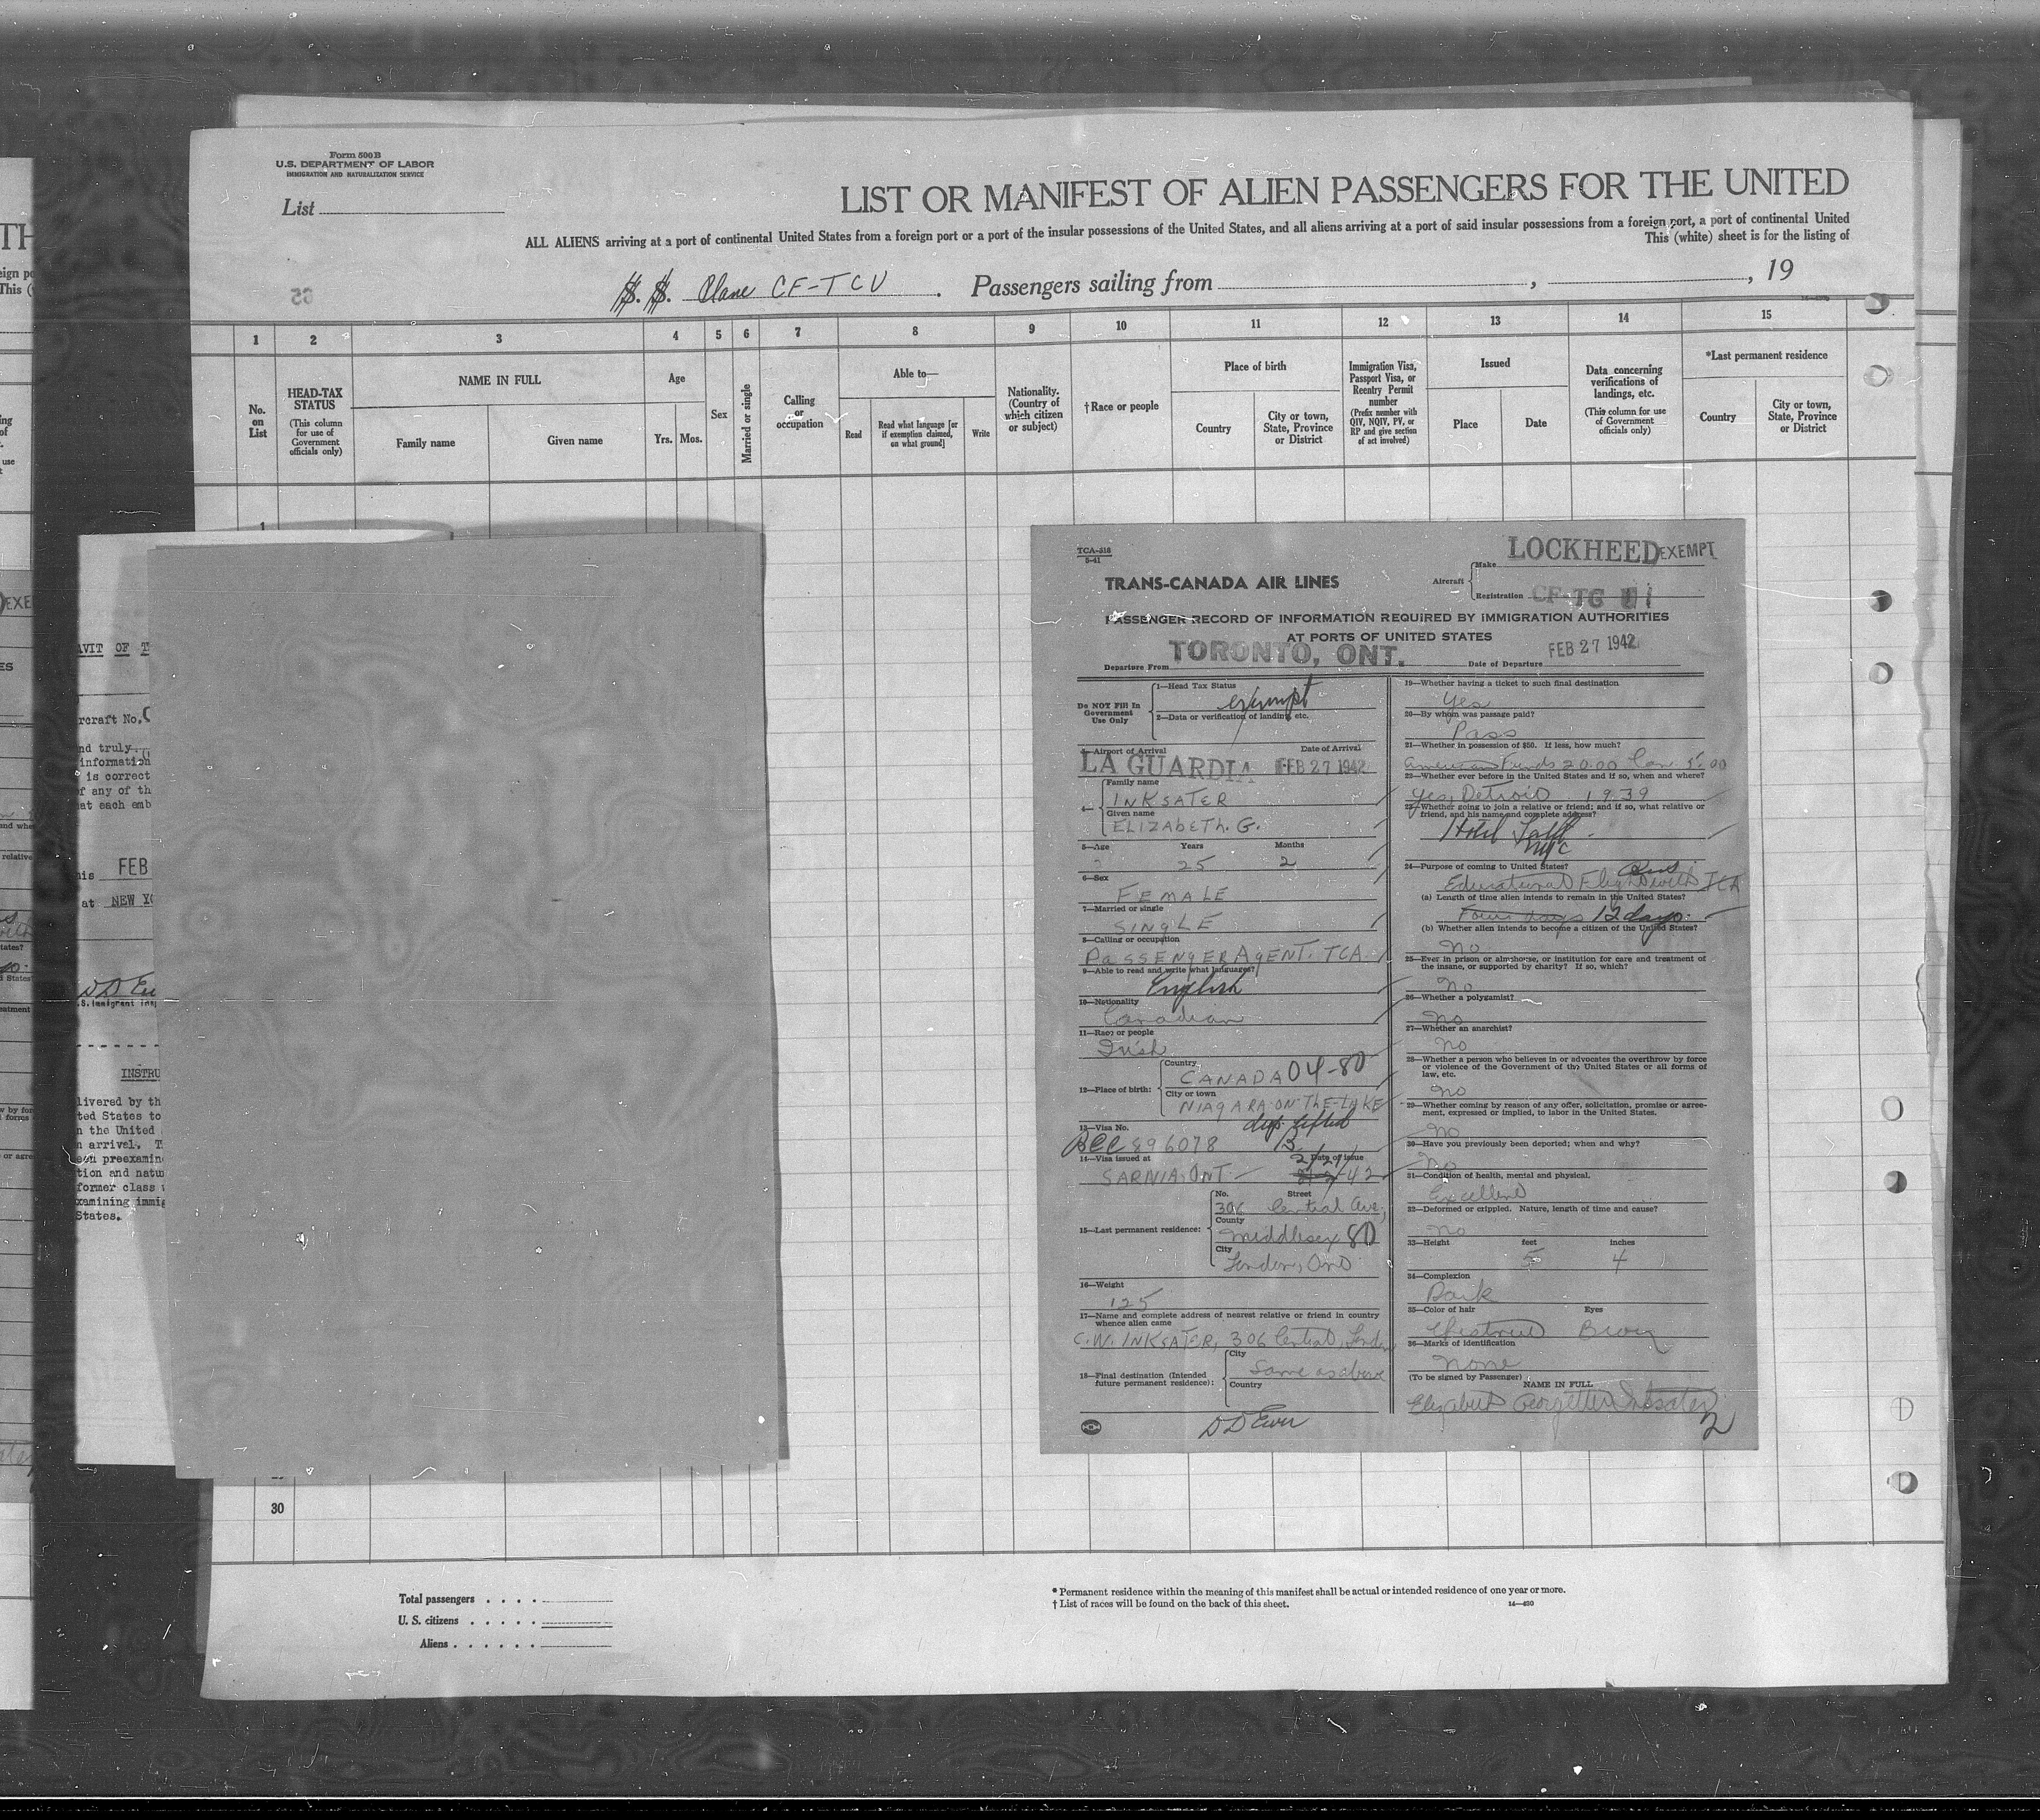 Form 500B
U.S. DEPARTMENT OF LABOR
IMMIGRATION AND NATURALIZATION SERVICE
List
LIST OR MANIFEST OF ALIEN PASSENGERS FOR THE UNITED
ALL ALIENS arriving at a port of continental United States from a foreign port or a port of the insular possessions of the United States, and all aliens arriving at a port of said insular possessions from a foreign port, a port of continental United
This (white) sheet is for the listing of
S. S. Plane CF-TCU . Passengers sailing from , , 19
65
1 2 3 4 5 6 7 8 9 10 11 12 13 14 15
No. on List
HEAD-TAX STATUS
(This column for use of Government officials only)
NAME IN FULL
Family name
Given name
Age
Yrs. Mos.
Sex
Married or single
Calling or occupation
Able to—
Read
Read what language [or if exemption claimed, on what ground]
Write
Nationality. (Country of which citizen or subject)
†Race or people
Place of birth
Country
City or town, State, Province or District
Immigration Visa, Passport Visa, or Reentry Permit number
(Prefix number with QIV, NQIV, PV, or RP and give section of act involved)
Issued
Place
Date
Data concerning verifications of landings, etc.
(This column for use of Government officials only)
*Last permanent residence
Country
City or town, State, Province or District
1
AVIT OF T
rcraft No.
nd truly
information
is correct
f any of th
at each emb
his FEB
at NEW YO
INSTRU
livered by th
ted States to
n the United
n arrival. T
een preexamin
tion and natu
former class
xamining immig
States.
TCA-318
5-41
TRANS-CANADA AIR LINES
Aircraft
Make LOCKHEED EXEMPT
Registration CF-TC
PASSENGER RECORD OF INFORMATION REQUIRED BY IMMIGRATION AUTHORITIES
AT PORTS OF UNITED STATES
Departure From TORONTO, ONT. Date of Departure FEB 27 1942
Do NOT Fill In Government Use Only
1—Head Tax Status
exempt
2—Data or verification of landing etc.
3—Airport of Arrival Date of Arrival
LA GUARDIA FEB 27 1942
Family name
INKSATER
Given name
ELIZABETH. G.
5—Age Years Months
25 2
6—Sex
FEMALE
7—Married or single
SINGLE
8—Calling or occupation
PASSENGER AGENT. TCA
9—Able to read and write what languages?
English
10—Nationality
Canadian
11—Race or people
Irish
12—Place of birth:
Country
CANADA 04-80
City or town
NIAGARA-ON-THE-LAKE
13—Visa No. dup. lifted
BCC 896078
14—Visa issued at Date of issue
SARNIA, ONT 42
15—Last permanent residence:
No. Street
306 Central Ave,
County
Middlesex 80
City
London, Ont
16—Weight
125
17—Name and complete address of nearest relative or friend in country
whence alien came
C.W. INKSATER, 306 Central, London
18—Final destination (Intended future permanent residence):
City
Same as above
Country
D D Ewer
19—Whether having a ticket to such final destination
Yes
20—By whom was passage paid?
Pass
21—Whether in possession of $50. If less, how much?
American Funds 20.00 Can. 5.00
22—Whether ever before in the United States and if so, when and where?
Yes, Detroit 1939
23—Whether going to join a relative or friend; and if so, what relative or
friend, and his name and complete address?
Hotel Taft
NYC
24—Purpose of coming to United States?
Educational Flight with TCA
(a) Length of time alien intends to remain in the United States?
Four days 12 days.
(b) Whether alien intends to become a citizen of the United States?
No
25—Ever in prison or almshouse, or institution for care and treatment of
the insane, or supported by charity? If so, which?
No
26—Whether a polygamist?
No
27—Whether an anarchist?
No
28—Whether a person who believes in or advocates the overthrow by force
or violence of the Government of the United States or all forms of
law, etc.
No
29—Whether coming by reason of any offer, solicitation, promise or agree-
ment, expressed or implied, to labor in the United States.
No
30—Have you previously been deported; when and why?
No
31—Condition of health, mental and physical.
Excellent
32—Deformed or crippled. Nature, length of time and cause?
No
33—Height feet inches
5 4
34—Complexion
Dark
35—Color of hair Eyes
Chestnut Brown
36—Marks of identification
None
(To be signed by Passenger)
NAME IN FULL
Elizabeth Georgette Inksater
2
30
Total passengers
U. S. citizens
Aliens
* Permanent residence within the meaning of this manifest shall be actual or intended residence of one year or more.
† List of races will be found on the back of this sheet.